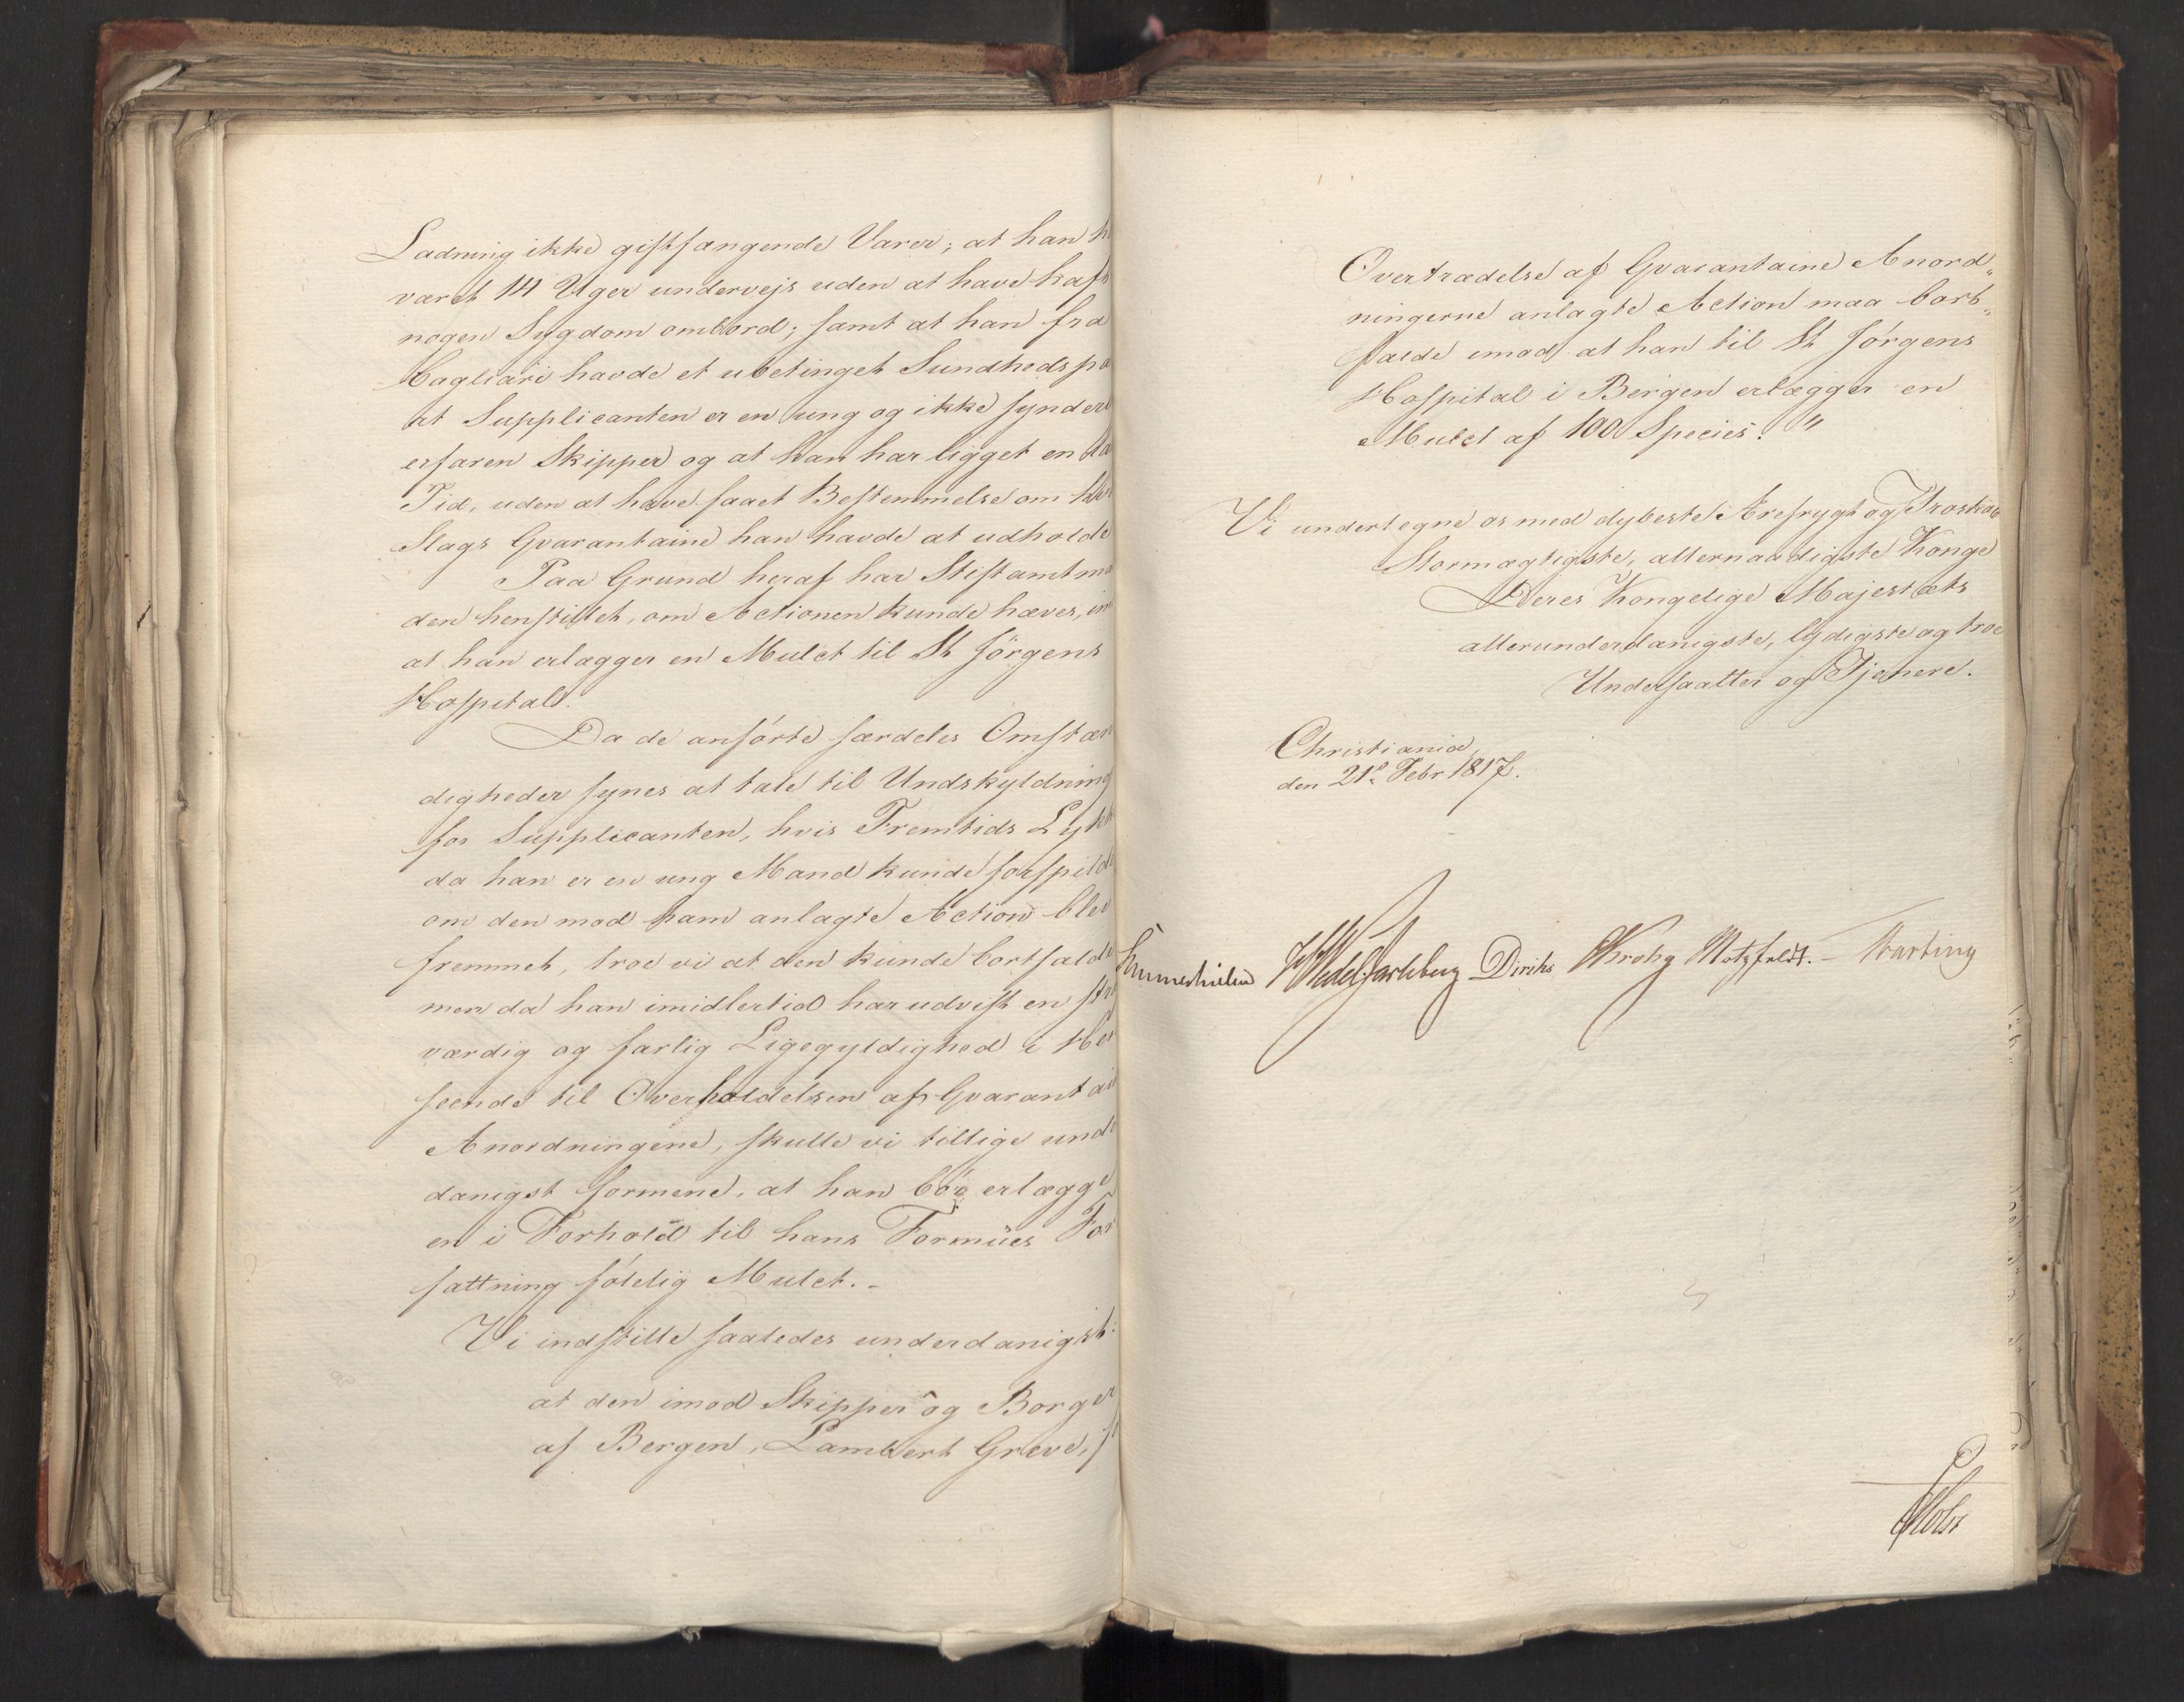 Ladning ikke giftfangende Varer; at han h
været 14 Uger undervejs uden at have haft
nogen Sygdom ombord; samt at han fra
Cagliari havde et ubetinget Sundhedspa
at Supplicanten er en ung og ikke synderl
erfaren Skipper og at han har ligget en la
Tid, uden at have faaet Bestemmelse om hva
Slags Qvarantaine han havde at udholde
Paa Grund heraf har Stiftamtma
den henstillet, om Actionen kunde hæves, im
at han erlægger en Mulct til St Jørgens
Hospital.
Da de anførte særdeles Omstæn
digheder synes at tale til Undskyldning
for Supplicanten, hvis Fremtids Lykk
da han er en ung Mand kunde forspilde
om den mod ham anlagte Action blev
fremmet, troe vi at den kunde bortfalde
men da han imidlertid har udvist en str
værdig og farlig Ligegyldighed i Hen
seende til Overholdelsen af Qvarantai
Anordningene, skulle vi tillige unde
danigst formene, at han bør erlægge
en i Forhold til hans Formues For
fattning følelig Mulct. -
Vi indstille saaledes underdanigst:
at den imod Skipper og Borger
af Bergen, Lambert Greve, f
Overtrædelse af Qvarantaine Anord„
ningerne anlagte Action maa bort„
falde imod at han til St Jørgens
Hospital i Bergen erlægger en
Mulct af 100 Species. "
Vi undertegne os med dybeste Ærefrygt og Troskab
Stormægtigste, allernaadigste Konge
Deres Kongelige Majestæts
allerunderdanigste, lydigste og troe
Undersaatter og Tjenere.
Christiania,
den 21de Febr 1817.
Sommerhielm HWedelJarlsberg Diriks Krohg Motzfeldt. - Harbing